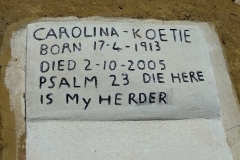 CAROLINA-KOETIE
BORN 17-4-1913
DIED 2-10-2005
PSALM 23 DIE HERE
IS My HERDER